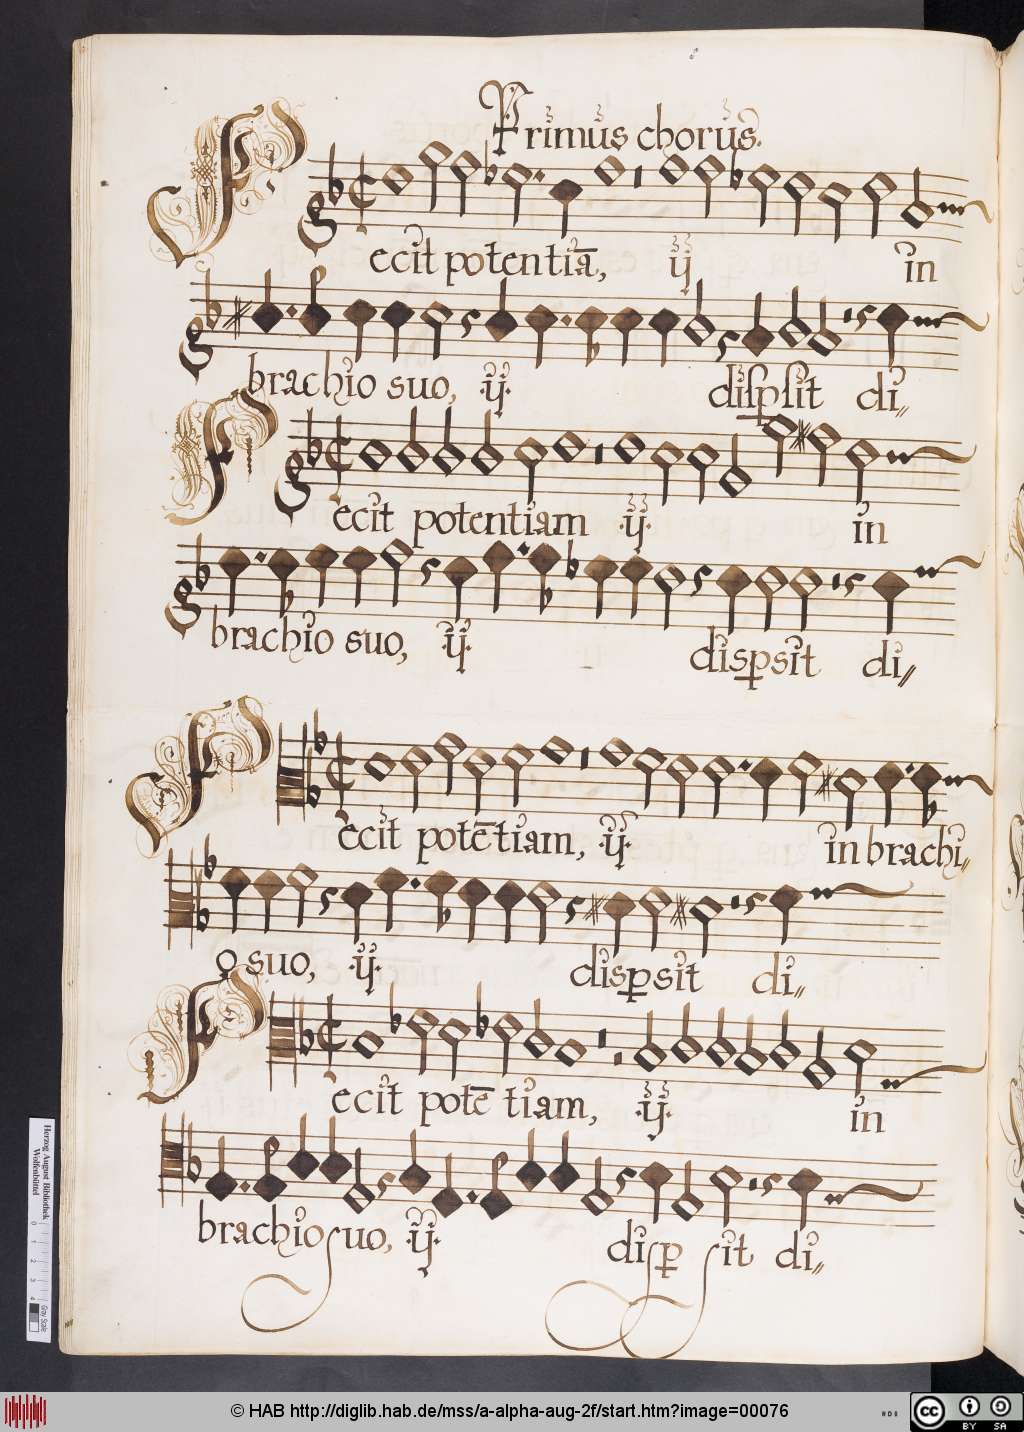 Primus chorus.
Fecit potentiā, ij in
brachio suo, ij. disꝑsit di
Fecit potentiam ij. in
brachio suo, ij. disꝑsit di
Fecit potētiam, ij. in brachi
o suo, ij. disꝑsit di
Fecit potē tiam, ij. in
brachio suo, ij. disꝑ sit di
Herzog August Bibliothek
Wolfenbüttel
0 1 2 3 4
Gray Scale
© HAB http://diglib.hab.de/mss/a-alpha-aug-2f/start.htm?image=00076
cc BY SA